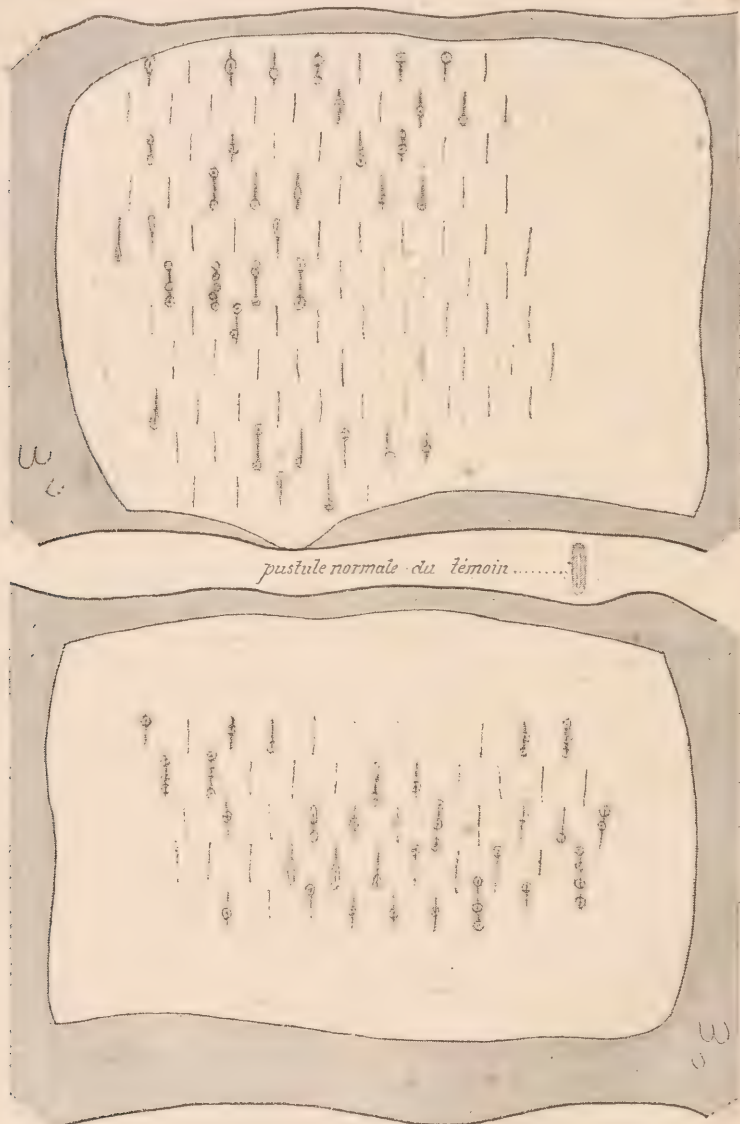 pustule normale du témoin..........